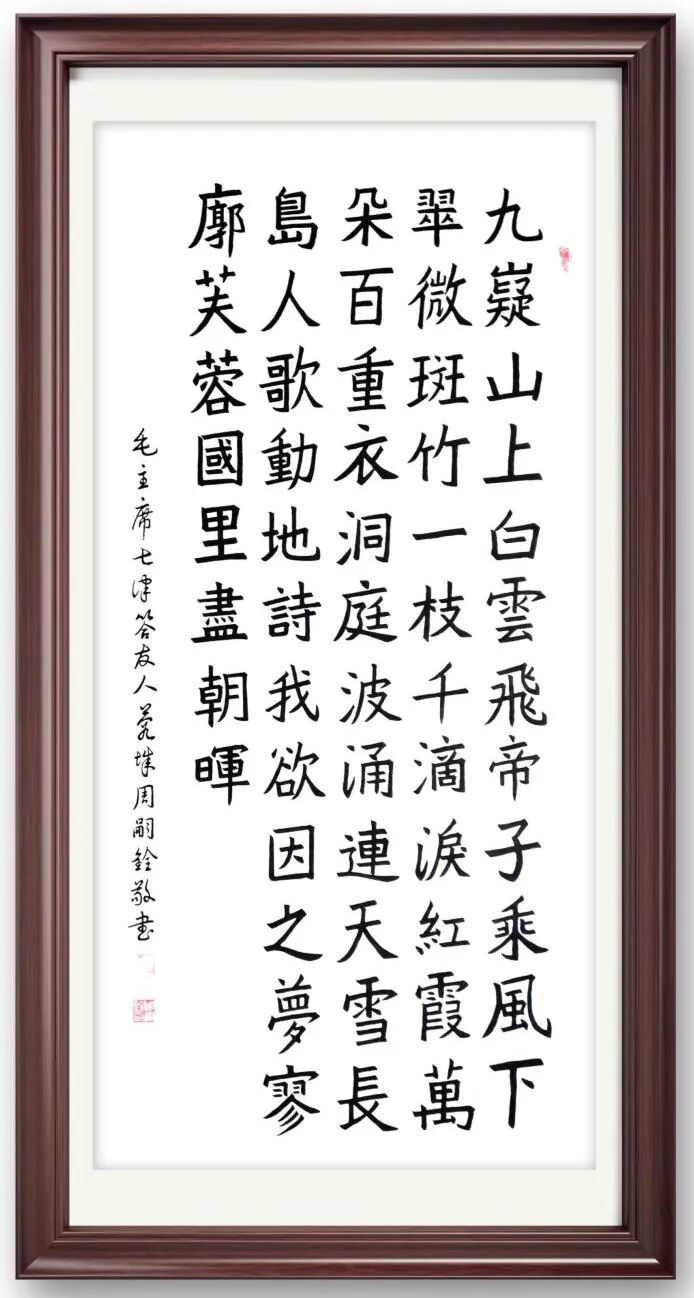 九嶷山上白雲飛帝子乘風下
翠微斑竹一枝千滴淚紅霞萬
朵百重衣洞庭波涌連天雪長
島人歌動地詩我欲因之夢寥
廓芙蓉國里盡朝暉
毛主席七律答友人 城周嗣銓敬书